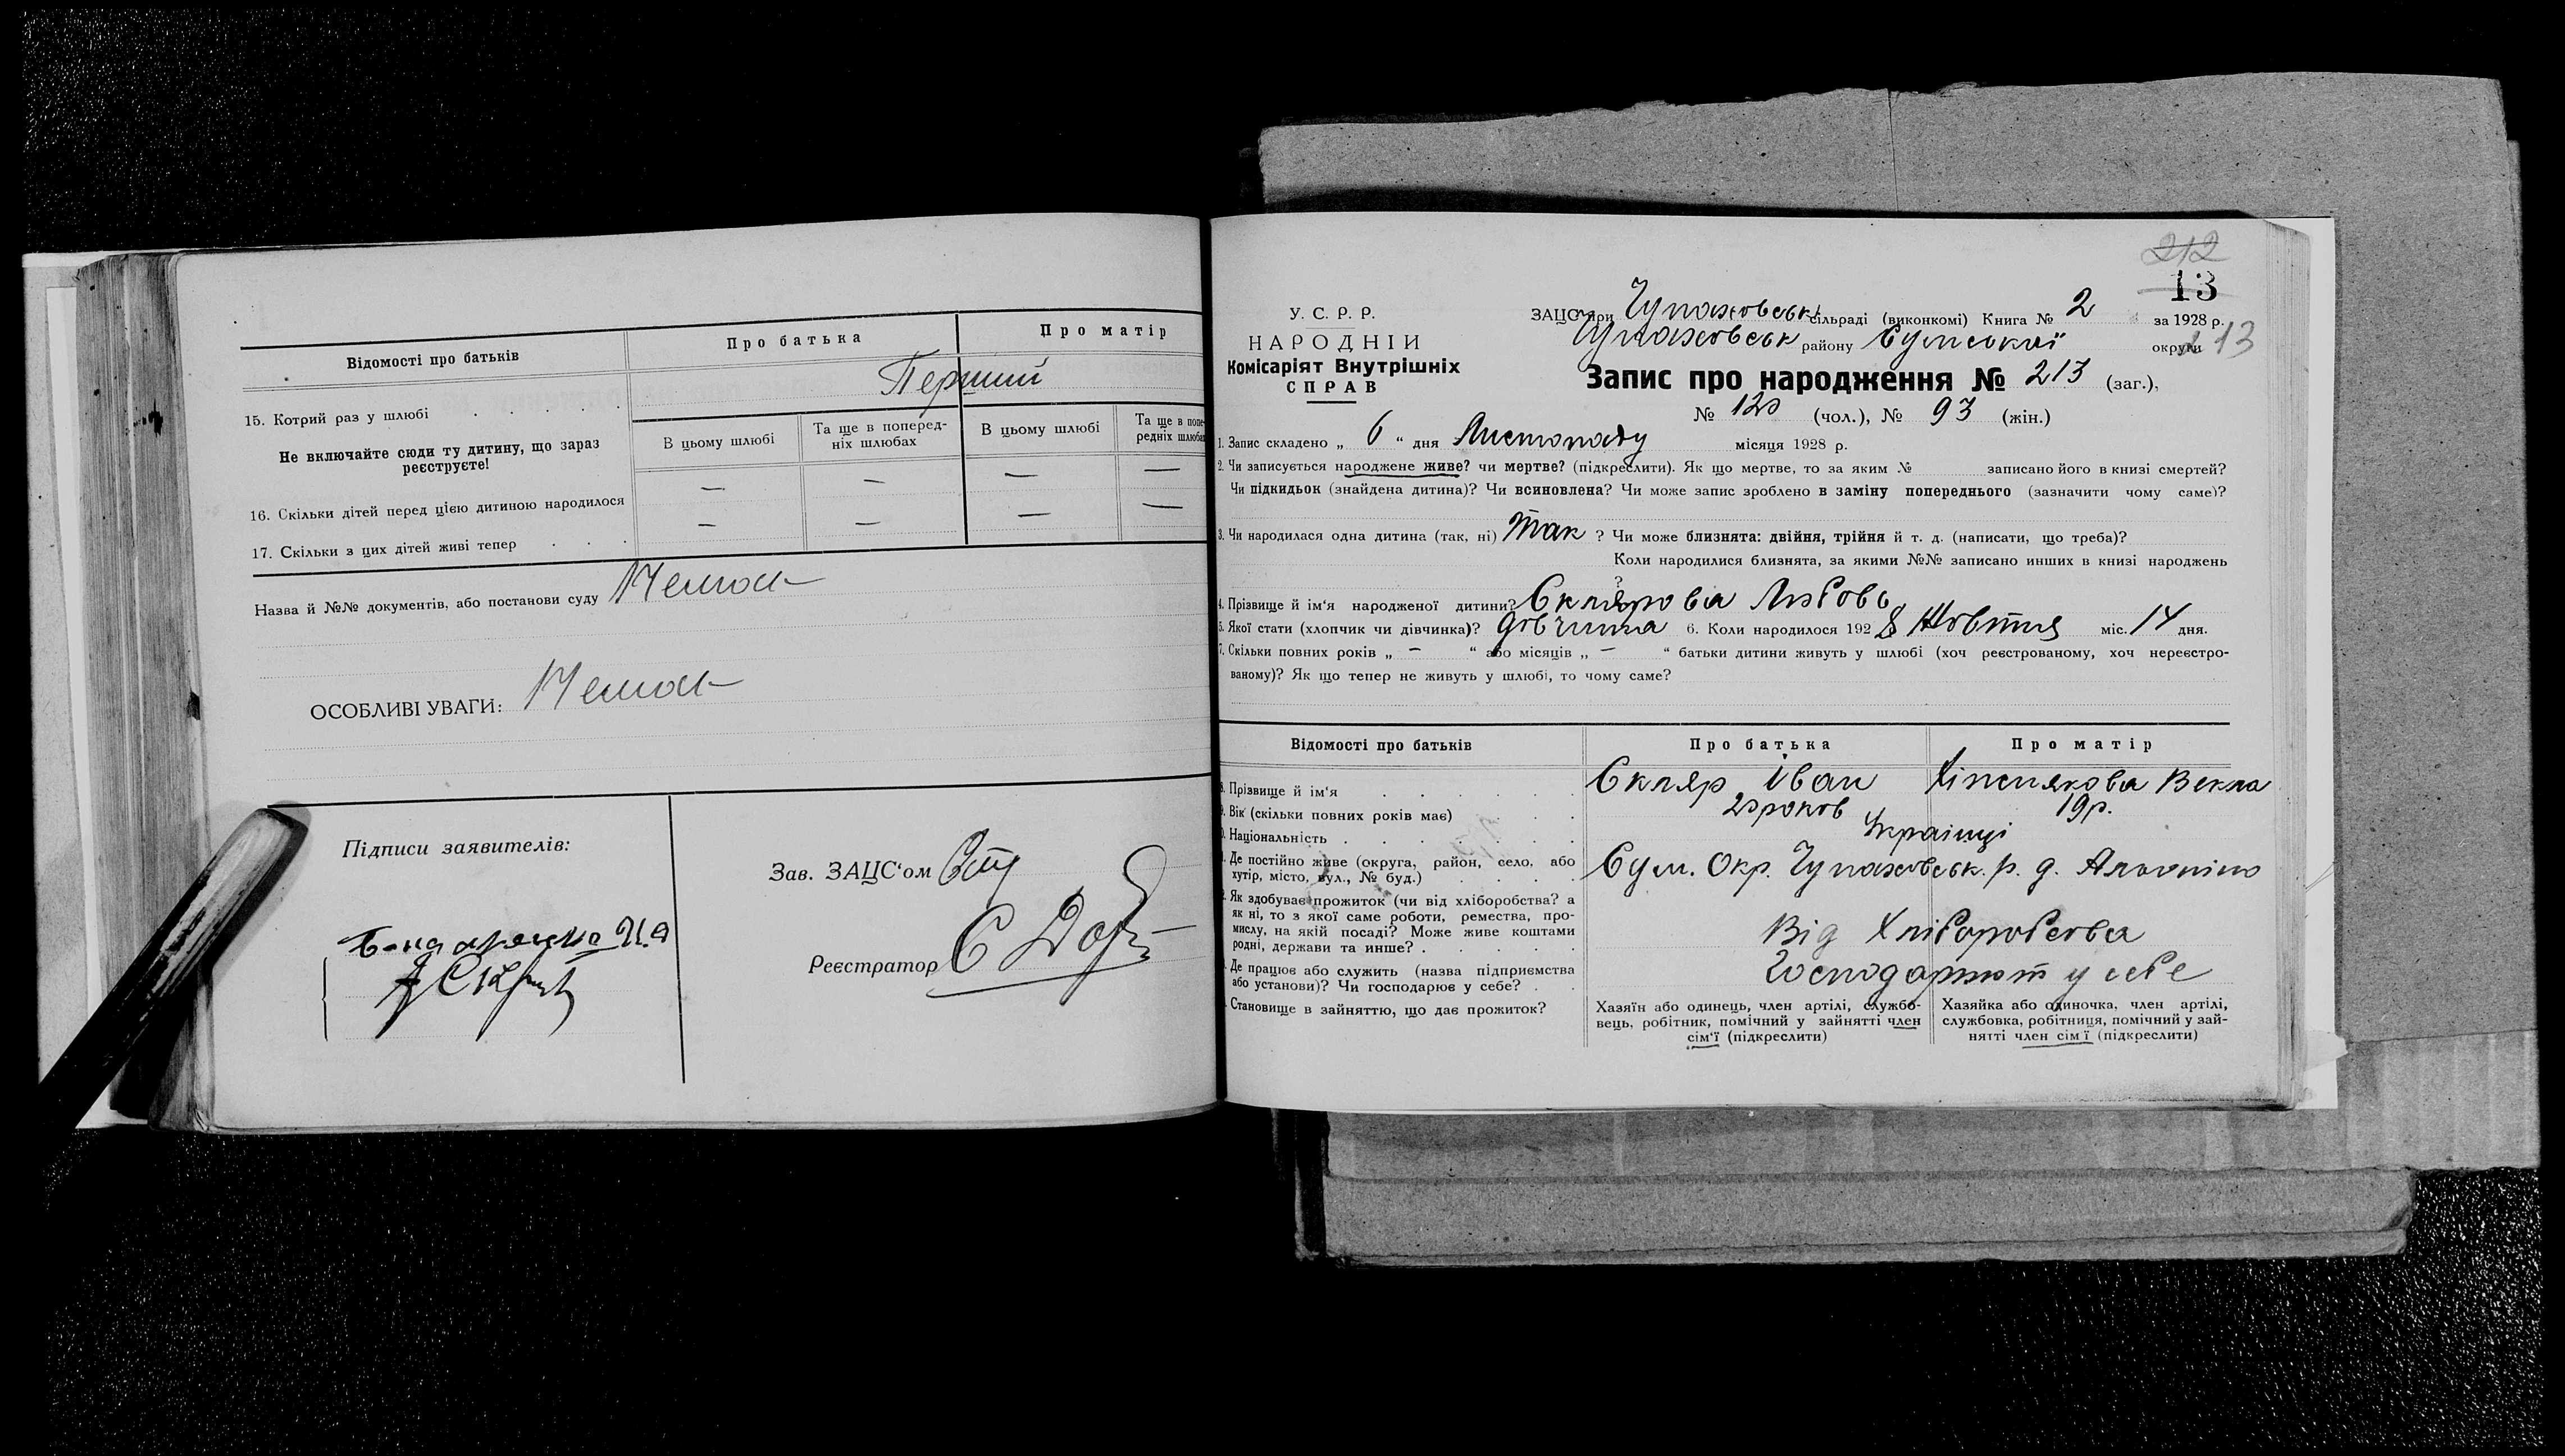 Відомості про батьків
Про батька
Про матір
15. Котрий раз у шлюбі
Перший
Не включайте сюди ту дитину, що зараз
реєструєте!
В цьому шлюбі
Та ще в поперед-
ніх шлюбах
В цьому шлюбі
Та ще в попе-
редніх шлюбах
16. Скільки дітей перед цією дитиною народилося — — — —
17. Скільки з цих дітей живі тепер — — — —
Назва й №№ документів, або постанови суду
ОСОБЛИВІ УВАГИ:
Підписи заявителів:
Зав. ЗАЦС'ом
Реєстратор
212
13
213
У. С. Р. Р.
НАРОДНІЙ
Комісаріят Внутрішніх
СПРАВ
ЗАЦС при Чупаховськ. сільраді (виконкомі) Книга № 2 за 1928 р.
Чупаховськ району Сумської округи
Запис про народження № 213 (заг.),
№ 120 (чол.), № 93 (жін.)
1. Запис складено „ 6 “ дня Листопаду місяця 1928 р.
2. Чи записується народжене живе? чи мертве? (підкреслити). Як що мертве, то за яким № записано його в книзі смертей?
Чи підкидьок (знайдена дитина)? Чи всиновлена? Чи може запис зроблено в заміну попереднього (зазначити чому саме)?
3. Чи народилася одна дитина (так, ні) Так ? Чи може близнята: двійня, трійня й т. д. (написати, що треба)?
Коли народилися близнята, за якими №№ записано инших в книзі народжень
?
4. Прізвище й ім'я народженої дитини? Склярова Любовь
5. Якої стати (хлопчик чи дівчинка)? дівчина 6. Коли народилося 192 8 Жовтня міс. 14 дня.
7. Скільки повних років „ — “ або місяців „ — “ батьки дитини живуть у шлюбі (хоч реєстрованому, хоч нереєстро-
ваному)? Як що тепер не живуть у шлюбі, то чому саме?
Відомості про батьків
Про батька
Про матір
8. Прізвище й ім'я
Скляр Іван
Векла
9. Вік (скільки повних років має)
20 роков
19 р.
10. Національність
Українці
Де постійно живе (округа, район, село, або
хутір, місто, вул., № буд.)
Сум. Окр. Чупаховськ. р. д.
Як здобуває прожиток (чи від хліборобства? а
як ні, то з якої саме роботи, ремества, про-
мислу, на якій посаді? Може живе коштами
родні, держави та инше?
Від Хліборобства
Де працює або служить (назва підприємства
або установи)? Чи господарює у себе?
Господарюют у себе
Становище в зайняттю, що дає прожиток?
Хазяїн або одинець, член артілі, службо-
вець, робітник, помічний у зайнятті член
сім'ї (підкреслити)
Хазяйка або одиночка, член артілі,
службовка, робітниця, помічний у зай-
нятті член сім'ї (підкреслити)